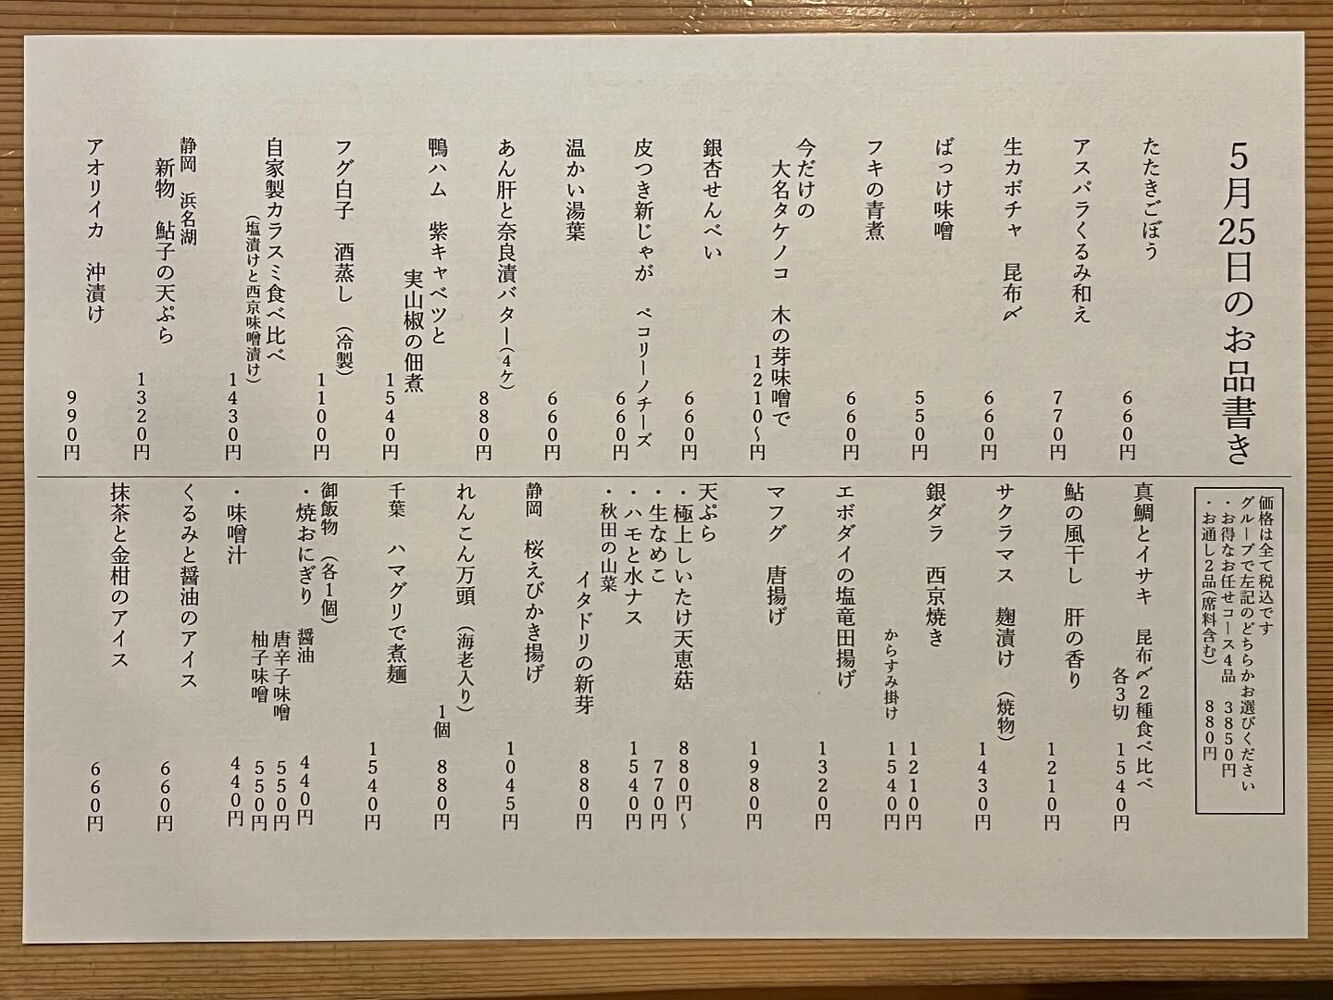 5月25日のお品書き
たたきごぼう
660円
アスパラくるみ和え
770円
生カボチャ 昆布〆
660円
ばっけ味噌
550円
フキの青煮
660円
今だけの
大名タケノコ 木の芽味噌で
1210〜円
銀杏せんべい
660円
皮つき新じゃが ペコリーノチーズ
660円
温かい湯葉
660円
あん肝と奈良漬バター(4ケ)
880円
鴨ハム 紫キャベツと
実山椒の佃煮
1540円
フグ白子 酒蒸し (冷製)
1100円
自家製カラスミ食べ比べ
(塩漬けと西京味噌漬け)
1430円
静岡 浜名湖
新物 鮎子の天ぷら
1320円
アオリイカ 沖漬け
990円
価格は全て税込です
グループで左記のどちらかお選びください
・お得なお任せコース4品 3850円
・お通し2品(席料含む) 880円
真鯛とイサキ 昆布〆2種食べ比べ
各3切 1540円
鮎の風干し 肝の香り
1210円
サクラマス 麹漬け (焼物)
1430円
銀ダラ 西京焼き
1210円
からすみ掛け 1540円
エボダイの塩竜田揚げ
1320円
マフグ 唐揚げ
1980円
天ぷら
・極上しいたけ天恵菇 880円〜
・生なめこ 770円
・ハモと水ナス 1540円
・秋田の山菜
イタドリの新芽 880円
静岡 桜えびかき揚げ
1045円
れんこん万頭 (海老入り)
1個 880円
千葉 ハマグリで煮麺
1540円
御飯物 (各1個)
・焼おにぎり 醤油 440円
唐辛子味噌 550円
柚子味噌 550円
・味噌汁 440円
くるみと醤油のアイス
660円
抹茶と金柑のアイス
660円